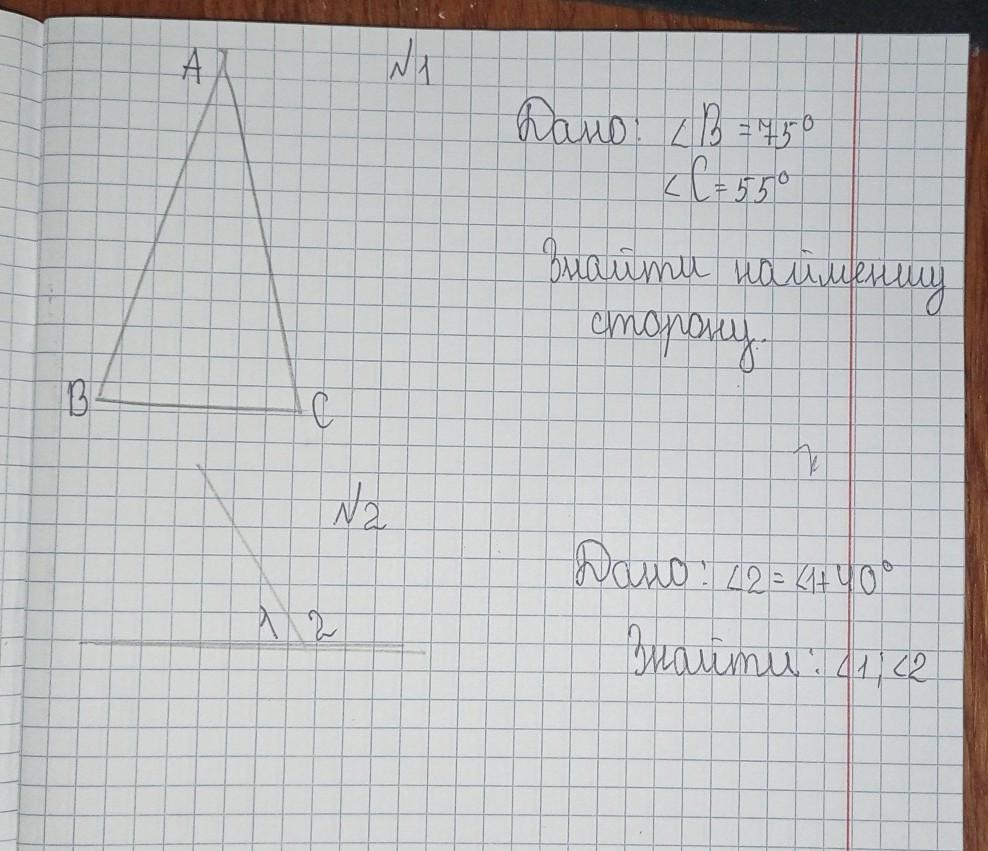 A
N1
Дано: ∠B = 75°
∠C = 55°
Знайти найменшу
сторону.
B
C
N2
Дано: ∠2 = ∠1 + 40°
1 2
Знайти: ∠1; ∠2